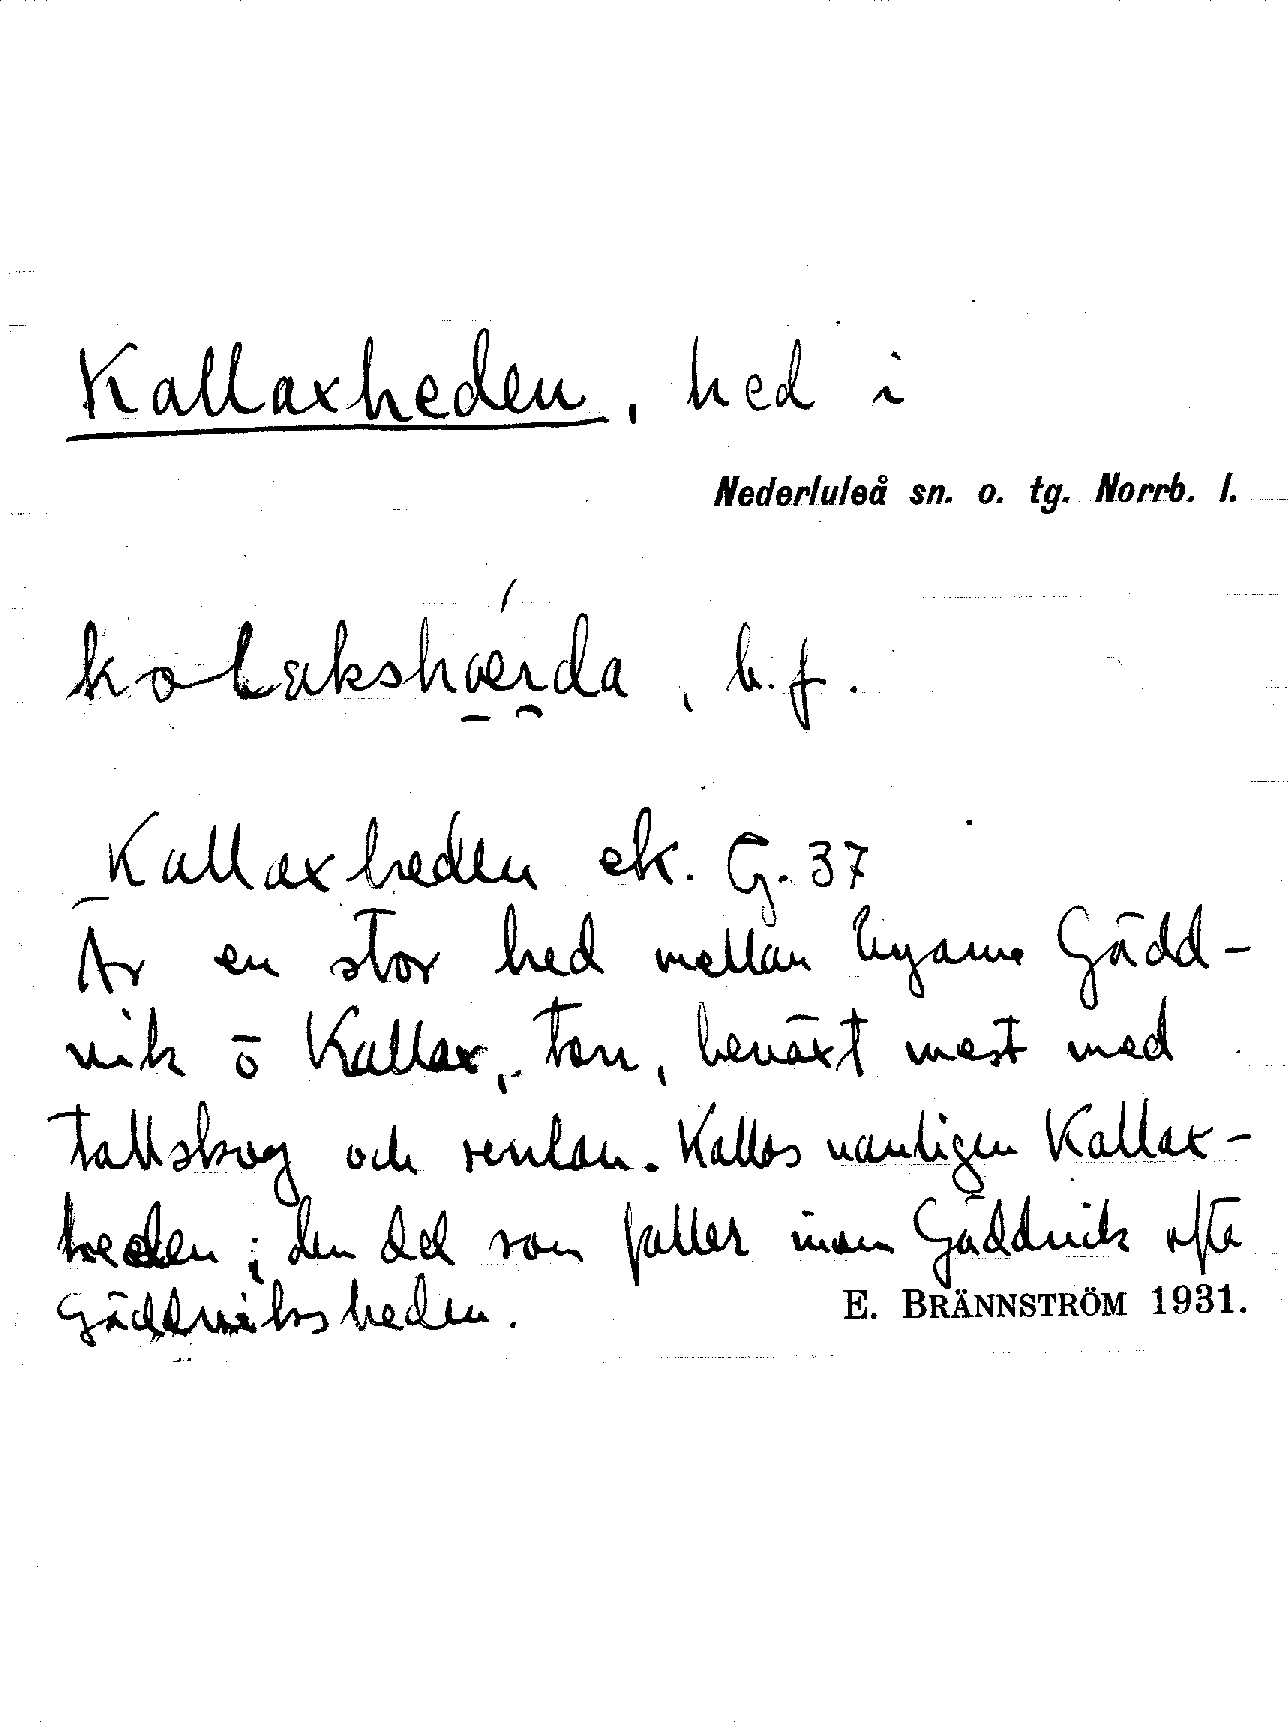 Kallaxheden, hed i
Nederluleå sn. o. tg. Norrb. l.
, b.f.
Kallaxheden ek. G. 37
Är en stor hed mellan byarna Gädd-
vik o Kallax, torr, beväxt mest med
tallskog och renlav. Kallas vanligen Kallax-
heden; den del som faller inom Gäddvik ofta
Gäddviksheden.
E. BRÄNNSTRÖM 1931.